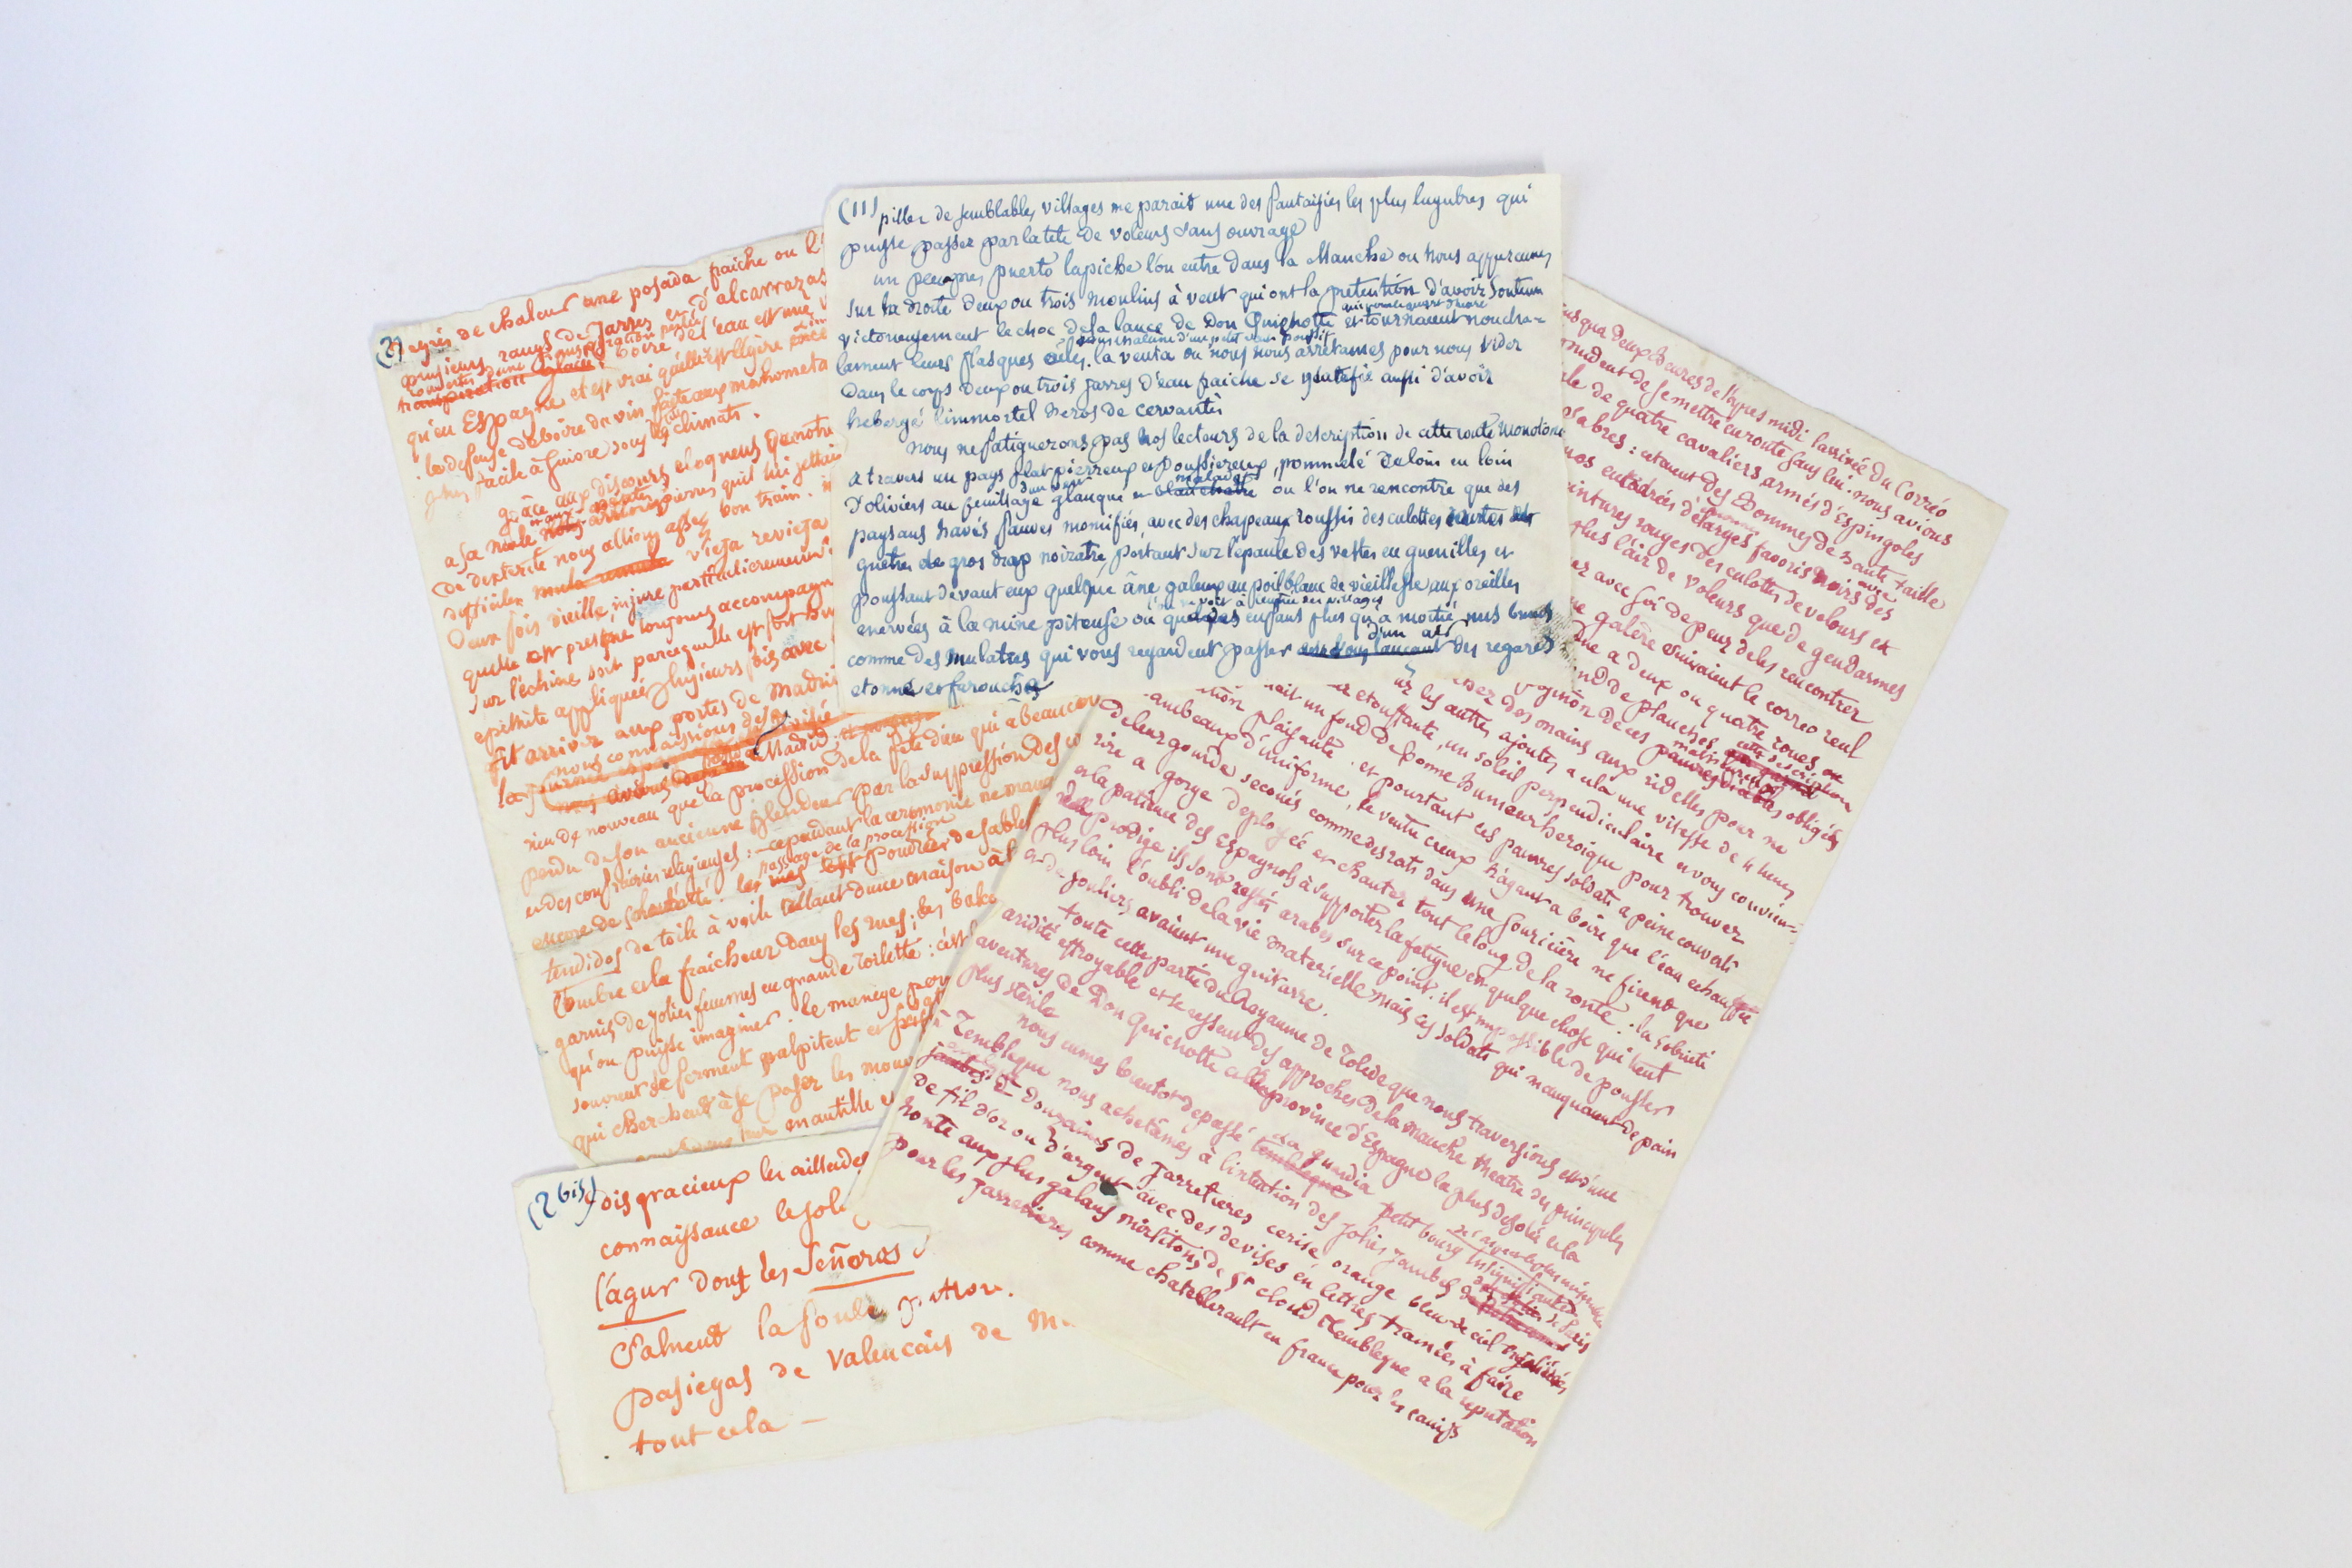 (11) piller de semblables villages me parait une des fantaisies les plus lugubres qui
puisse passer par la tete de voleurs sans ouvrage
un peu apres puerto lapiche l'on entre dans la Manche ou nous appercumes
sur la droite deux ou trois moulins à vent qui ont la pretention d'avoir soutenu
victorieusement le choc de la lance de Don Quichotte et tournaient noncha-
lament leurs flasques ailes. la venta ou nous nous arretames pour nous vider
dans le corps deux ou trois jarres d'eau fraiche se glorifie aussi d'avoir
hebergé l'immortel heros de cervantes
nous ne fatiguerons pas nos lecteurs de la description de cette route monotone
a travers un pays plat pierreux et poussiereux, pommelé de loin en loin
d'oliviers au feuillage d'un vert glauque et malade ou l'on ne rencontre que des
paysans havés fauves momifiés, avec des chapeaux roussis des culottes courtes
guêtres de gros drap noiratre, portant sur l'epaule des vestes en guenilles et
poussant devant eux quelque âne galeux au poil blanc de vieillesse aux oreilles
enervées à la mine piteuse ou enfans plus qu'a moitié nus bruns
comme des mulatres qui vous regardent passer d'un air des regards
etonné et farouche
(2) de chaleur une posada fraiche ou l'
plusieurs rangs de jarres et d'alcarrazas
boire de l'eau est une
qu'en Espagne et est vrai qu'elle est légère
la defense de boire du vin faite aux mahometa
plus facile à suivre sous les climats.
grâce aux discours eloquens que notre
a sa mule aux pierres qu'il lui jettait
de dexterité nous allions assez bon train.
difficiles vieja revieja
deux fois vieille, injure particulierement
quelle est presque toujours accompagn
sur l'échine soit parcequ'elle est fort
epithète appliquée plusieurs fois avec
fit arriver aux portes de Madrid
nous connaissions
Madrid
rien de nouveau que la procession de la fête dieu qui a beaucou
perdu de son ancienne splendeur par la suppression des co
et des confrairies religieuses: cependant la ceremonie ne manq
encore de solennité. passage de la procession poudrées de sable
tendidos de toile à voile allant d'une maison à l
l'ombre et la fraicheur dans les rues; les balco
garnis de jolies femmes en grande toilette: c'est
qu'on puisse imaginer. le manège per
s'ouvrent se ferment palpitent et
qui cherchent à se poser les mouv
mantille
(2 bis) dois gracieux les œillades
connaissance le joli
l'agur dont les señoras
saluent la foule
pasiegas de valencais de M
tout cela –
deux heures de l'apres midi l'arrivée du correo
prudent de se mettre en route sans lui. nous avions
de quatre cavaliers, armés d'espingoles
sabres: c'etaient des hommes de haute taille
encadrées d'enormes favoris noirs des
ceintures rouges des culottes de velours et
plus l'air de voleurs que de gendarmes
avec soi de peur de les rencontrer
galère suivaient le correo reul
a deux ou quatre roues
de planches cette description
de ces malheureux obligés
des mains aux ridelles pour ne
les autres, ajoutez a cela une vitesse de 4 lieues
etouffante, un soleil perpendiculaire et vous convien-
un fond de bonne humeur heroique pour trouver
plaisante. et pourtant ces pauvres soldats a peine couverts
lambeaux d'uniforme, le ventre creux n'ayant a boire que l'eau echauffée
de leur gourde secoués comme des rats dans une souricière ne firent que
rire a gorge deployée et chanter tout le long de la route: la sobrieté
et la patience des Espagnols à supporter la fatigue est quelque chose qui tient
du prodige ils sont restés arabes sur ce point. il est impossible de pousser
plus loin l'oubli de la vie materielle mais ces soldats qui manquaient de pain
et de souliers avaient une guitarre.
toute cette partie du Royaume de Tolede que nous traversions est d'une
aridité effroyable et se ressent des approches de la manche theatre des principales
aventures de Don Quichotte et la province d'Espagne la plus desolée et la
plus sterile
nous eumes bientot depassé la guardia petit bourg insignifiant
à Tembleque nous achetâmes à l'intention des jolies jambes de Paris
douzaines de jarretieres cerise orange bleu de ciel enjolivées
de fil d'or ou d'argent avec des devises en lettres tramées à faire
honte aux plus galans mirlitons de St cloud Tembleque a la reputation
pour les jarretieres comme chatellerault en france pour les canifs